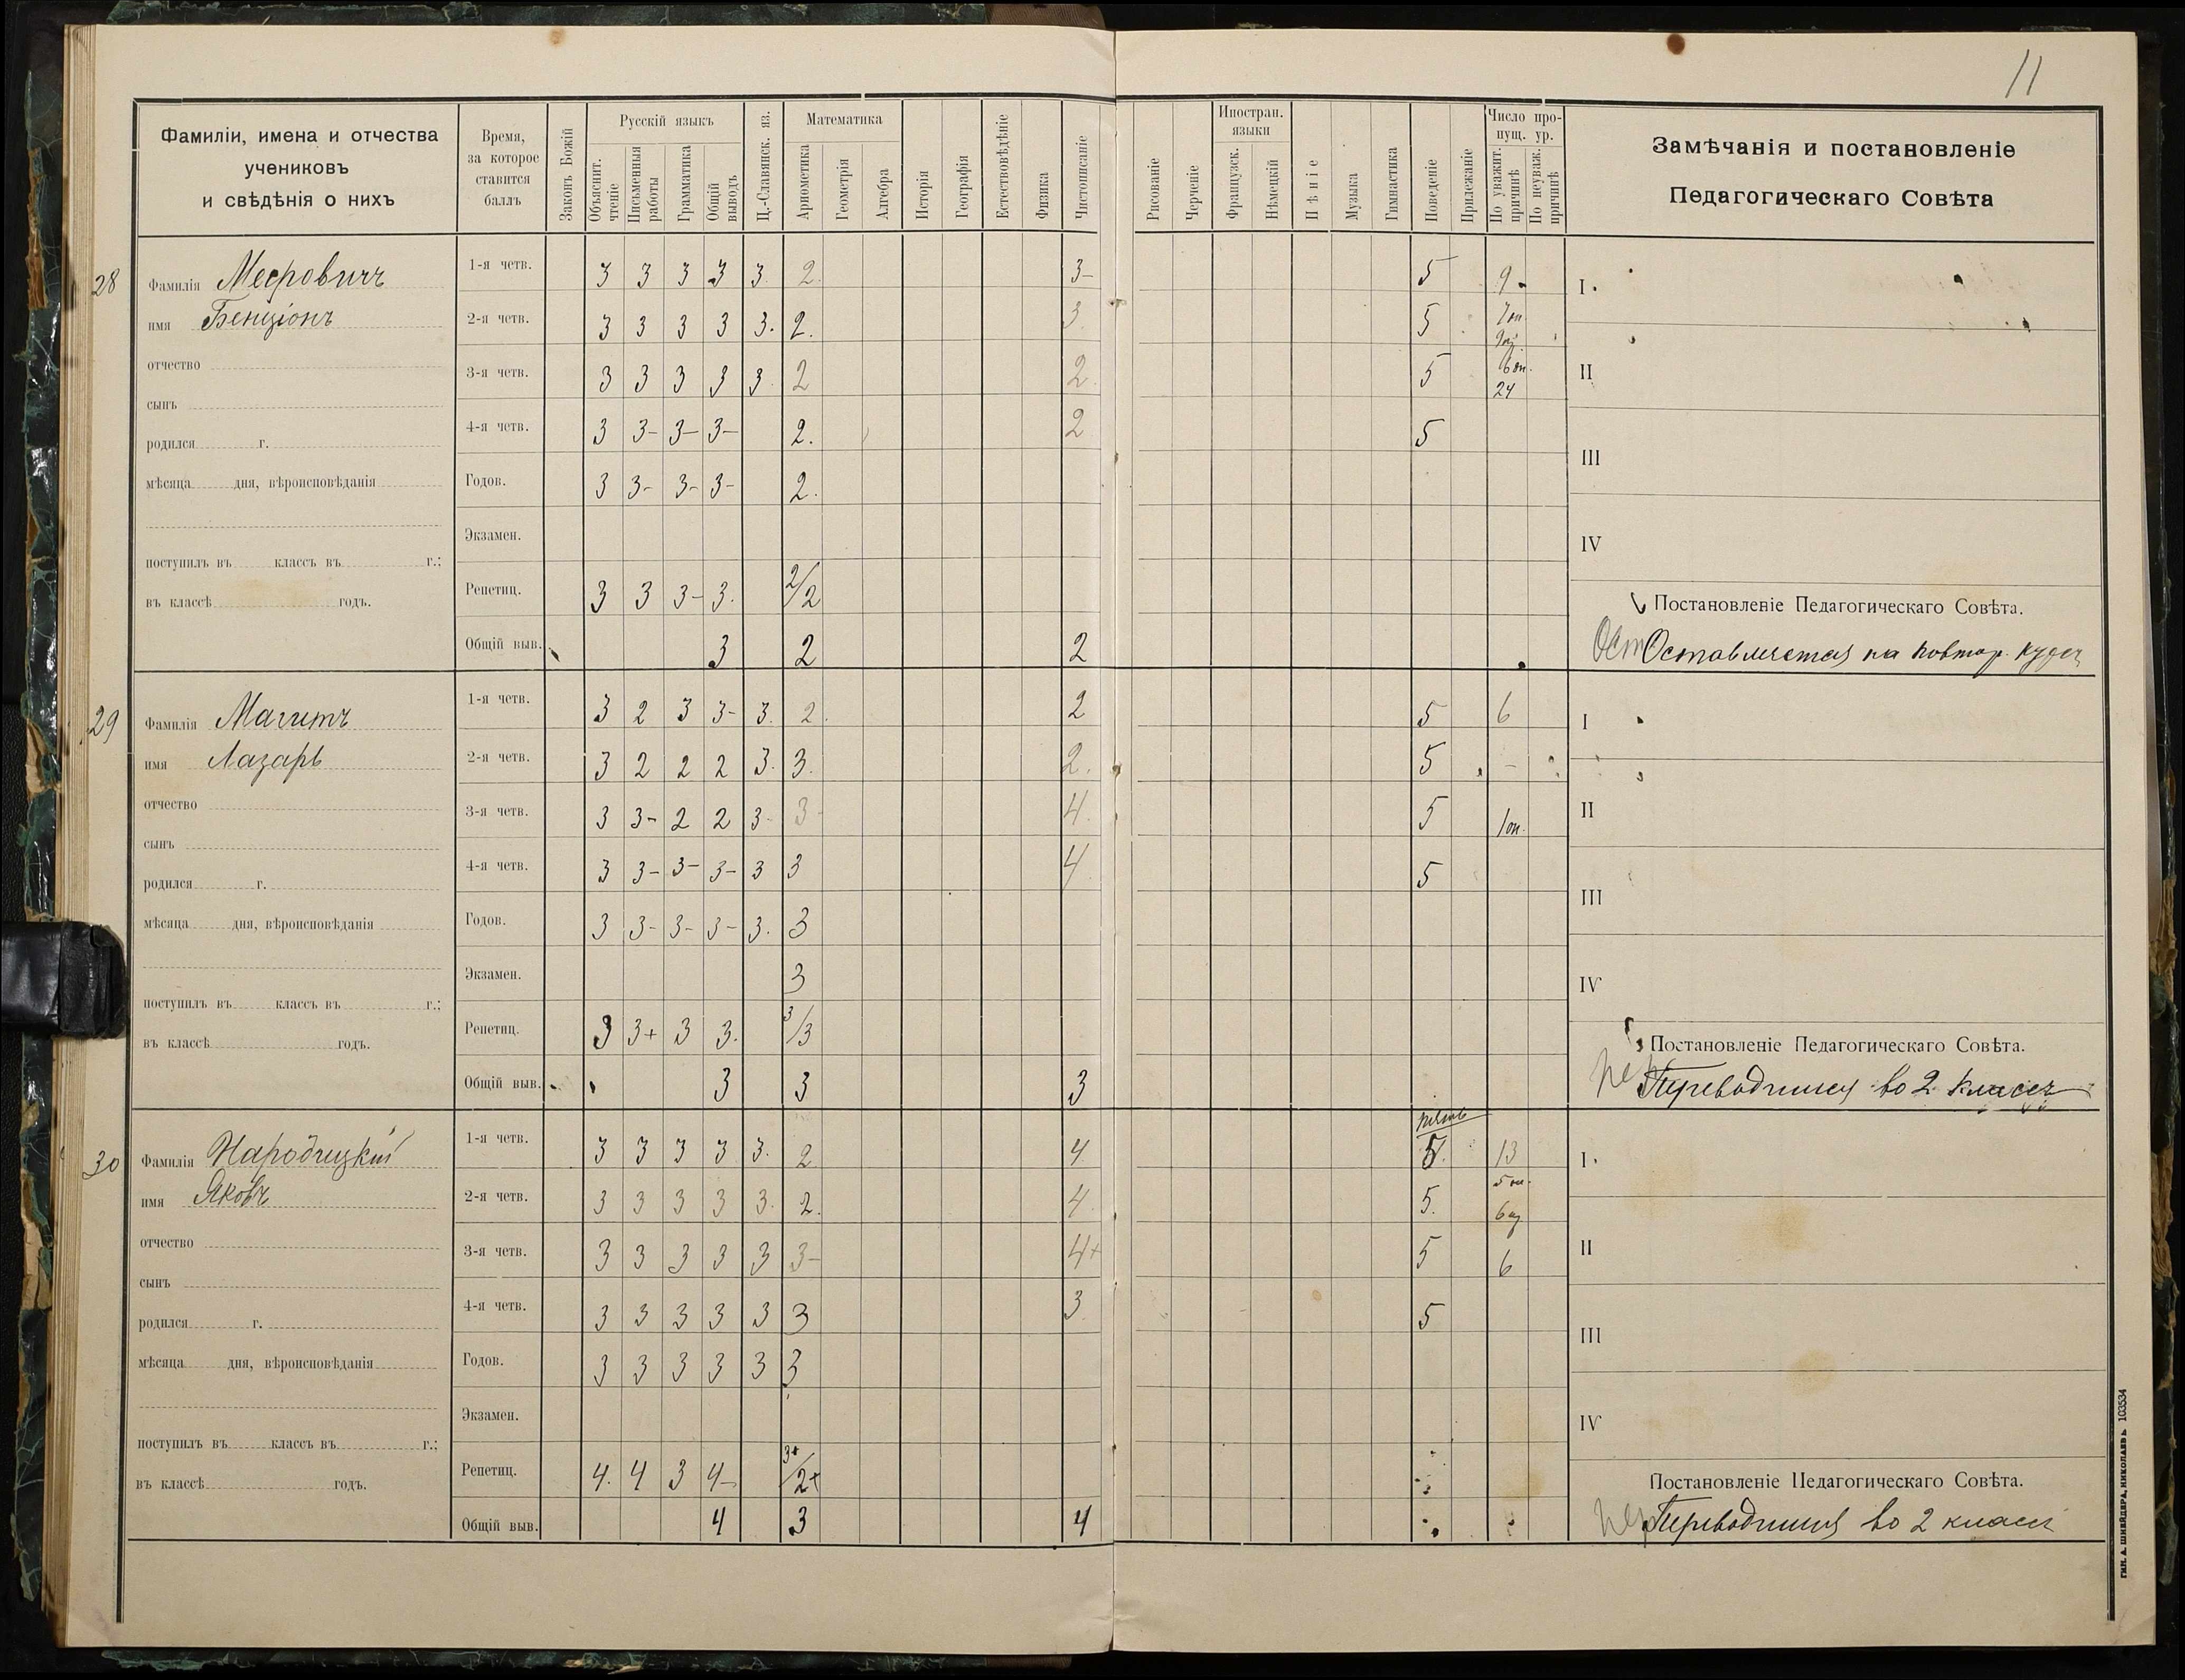 11
Фамиліи, имена и отчества
учениковъ
и свѣдѣнія о нихъ
Время,
за которое
ставится
баллъ
Законъ Божій
Русскій языкъ
Объяснит. чтеніе
Письменныя работы
Грамматика
Общій выводъ
Ц.-Славянск. яз.
Математика
Ариѳметика
Геометрія
Алгебра
Исторія
Географія
Естествовѣдѣніе
Физика
Чистописаніе
Рисованіе
Черченіе
Иностран. языки
Французск.
Нѣмецкій
Пѣніе
Музыка
Гимнастика
Поведеніе
Прилежаніе
Число пропущ. ур.
По уважит. причинѣ
По неуваж. причинѣ
Замѣчанія и постановленіе
Педагогическаго Совѣта
28
Фамилія Меерович
имя Бенціонъ
отчество
сынъ
родился г.
мѣсяца дня, вѣроисповѣданія
поступилъ въ классъ въ г.;
въ классѣ годъ.
1-я четв. 3 3 3 3 3. 2. 3- 5 9
2-я четв. 3 3 3 3 3. 2. 3. 5 7оп.
3-я четв. 3 3 3 3 3. 2 2. 5 6оп. 24
4-я четв. 3 3- 3- 3- 2. 2 5
Годов. 3 3- 3- 3- 2.
Экзамен.
Репетиц. 3 3 3- 3. 2/2
Общій выв. 3 2 2
I
II
III
IV
Постановленіе Педагогическаго Совѣта.
Ост Оставляется на повтор. курсъ
29
Фамилія Магитъ
имя Лазарь
отчество
сынъ
родился г.
мѣсяца дня, вѣроисповѣданія
поступилъ въ классъ въ г.;
въ классѣ годъ.
1-я четв. 3 2 3 3- 3. 2. 2 5 6
2-я четв. 3 2 2 2 3. 3. 2. 5 -
3-я четв. 3 3- 2 2 3- 3- 4. 5 1оп.
4-я четв. 3 3- 3- 3- 3 3 4 5
Годов. 3 3- 3- 3- 3. 3
Экзамен. 3
Репетиц. 3 3+ 3 3. 3/3
Общій выв. 3 3 3
I
II
III
IV
Постановленіе Педагогическаго Совѣта.
Пер Переводится во 2 классъ
30
Фамилія Народицкій
имя Яковъ
отчество
сынъ
родился г.
мѣсяца дня, вѣроисповѣданія
поступилъ въ классъ въ г.;
въ классѣ годъ.
1-я четв. 3 3 3 3 3. 2 4 5. 13
2-я четв. 3 3 3 3 3. 2. 4. 5. 5оп.
3-я четв. 3 3 3 3 3 3- 4+ 5 6
4-я четв. 3 3 3 3 3 3 3 5
Годов. 3 3 3 3 3 3
Экзамен.
Репетиц. 4. 4 3 4- 3+/2+
Общій выв. 4 3 4
I
II
III
IV
Постановленіе Педагогическаго Совѣта.
Пер Переводится во 2 классъ
ТИП. А. ШНЕЙДЕРА, НИКОЛАЕВЪ 103534